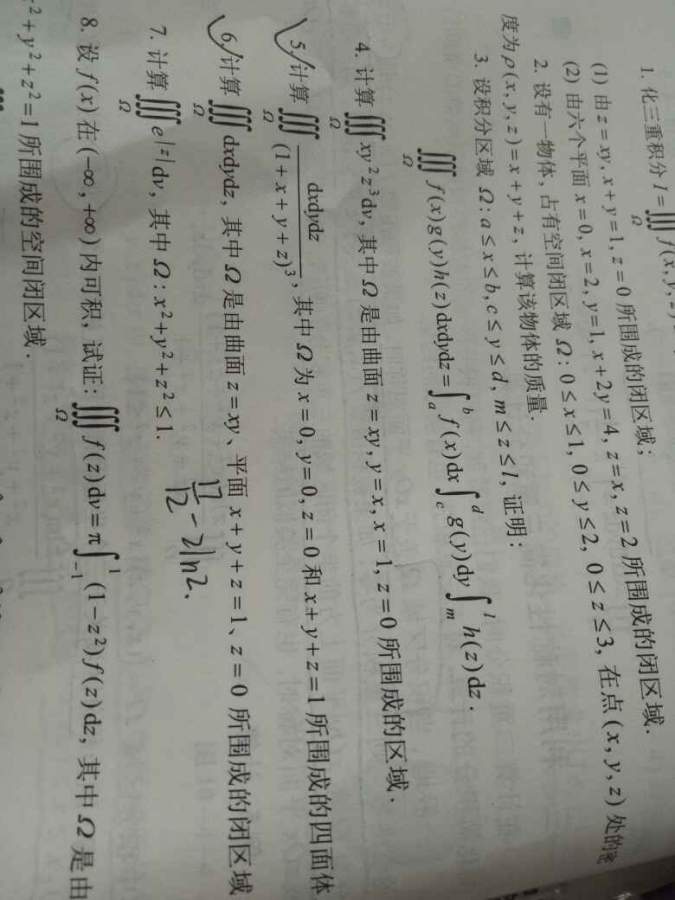 1. 化三重积分 I=∭_Ω f(x, y, z)
(1) 由 z=xy, x+y=1, z=0 所围成的闭区域;
(2) 由六个平面 x=0, x=2, y=1, x+2y=4, z=x, z=2 所围成的闭区域.
2. 设有一物体, 占有空间闭区域 Ω: 0≤x≤1, 0≤y≤2, 0≤z≤3, 在点(x, y, z)处的密
度为 ρ(x, y, z)=x+y+z, 计算该物体的质量.
3. 设积分区域 Ω: a≤x≤b, c≤y≤d, m≤z≤l, 证明:
∭_Ω f(x)g(y)h(z)dxdydz=∫_a^b f(x)dx∫_c^d g(y)dy∫_m^l h(z)dz.
4. 计算∭_Ω xy²z³dv, 其中 Ω 是由曲面 z=xy, y=x, x=1, z=0 所围成的区域.
5. 计算∭_Ω dxdydz/(1+x+y+z)³, 其中 Ω 为 x=0, y=0, z=0 和 x+y+z=1 所围成的四面体
6. 计算∭_Ω dxdydz, 其中 Ω 是由曲面 z=xy、平面 x+y+z=1、z=0 所围成的闭区域
17/12 - 2ln2.
7. 计算∭_Ω e^|z|dv, 其中 Ω: x²+y²+z²≤1.
8. 设 f(x)在(-∞, +∞)内可积, 试证: ∭_Ω f(z)dv=π∫_{-1}^1 (1-z²)f(z)dz, 其中 Ω 是由
x²+y²+z²=1 所围成的空间闭区域.